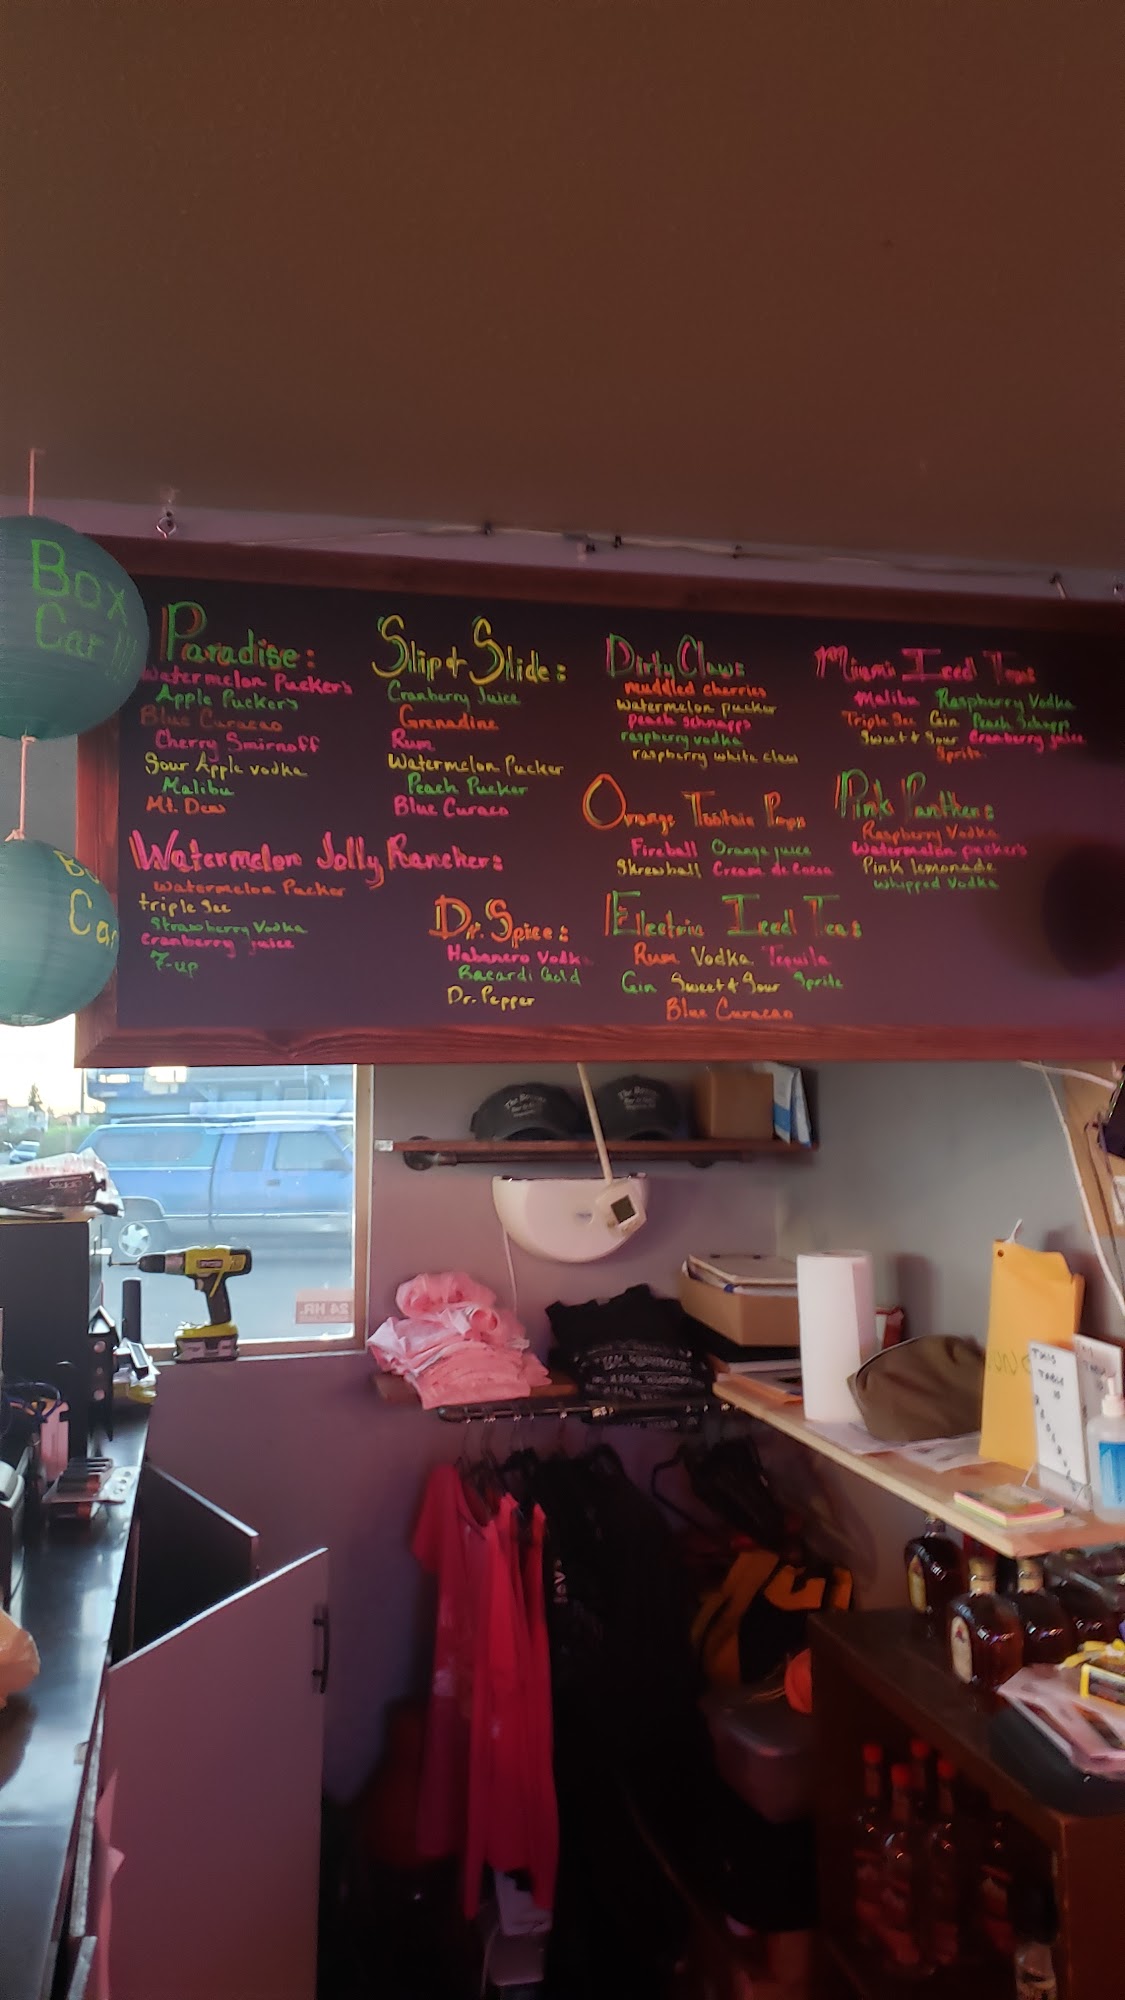 Box
Car!!!
Paradise:
Watermelon Puckers
Apple Puckers
Blue Curacao
Cherry Smirnoff
Sour Apple vodka
Malibu
Mt. Dew
Slip & Slide:
Cranberry Juice
Grenadine
Rum
Watermelon Pucker
Peach Pucker
Blue Curaco
Dirty Claw:
muddled cherries
watermelon pucker
peach schnapps
raspberry vodka
raspberry white claw
Miami Iced Teas
Malibu Raspberry Vodka
Triple Sec Gin Peach Schnapps
Sweet & Sour Cranberry juice
Sprite
Watermelon Jolly Ranchers:
Watermelon Pucker
triple Sec
Strawberry Vodka
Cranberry juice
7-up
Dr. Spice:
Habanero Vodka
Bacardi Gold
Dr. Pepper
Orange Tootsie Pops
Fireball Orange juice
Skrewball Cream de Cocoa
Electric Iced Teas
Rum Vodka Tequila
Gin Sweet & Sour Sprite
Blue Curacao
Pink Panthers
Raspberry Vodka
Watermelon puckers
Pink lemonade
whipped Vodka
Car
24 HR.
THIS
TABLE
IS